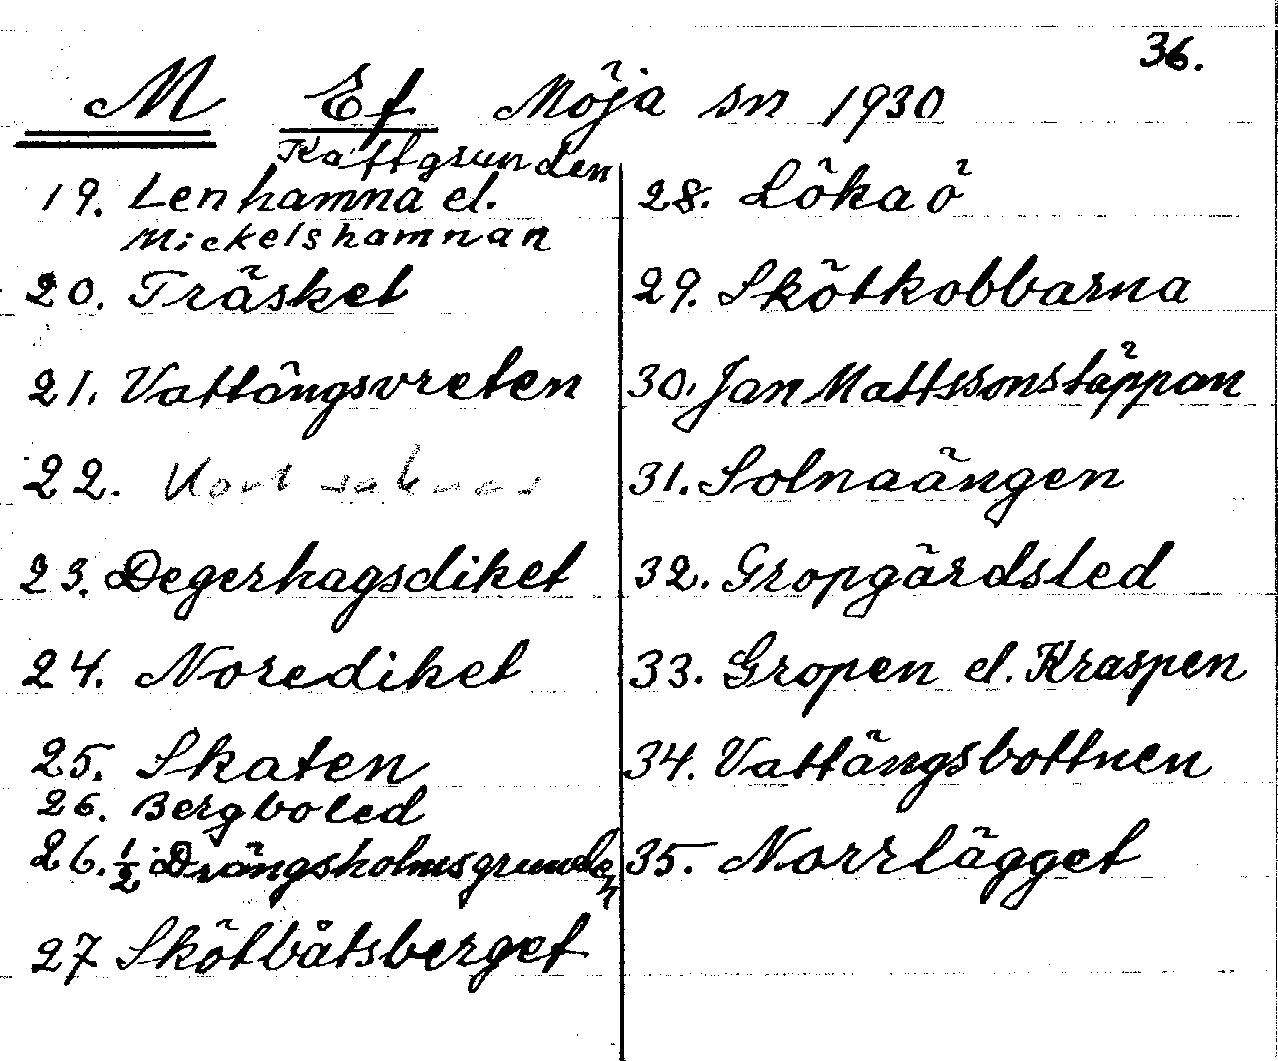 36.
M Ef Möja sn 1930
Kattgrunden
19. Lenhamna el.
Mickelshamnan
20. Träsket
21. Vattängsvreten
22. Kort saknas
23. Degerhagsdiket
24. Norediket
25. Skaten
26. Bergboled
26. 1/2 Drängsholmsgrunden
27 Skötbåtsberget
28. Löka ö
29. Skötkobbarna
30. Jan Mattssonstäppan
31. Solnaängen
32. Gropgärdsled
33. Gropen el. Kraspen
34. Vattängsbottnen
35. Norrlägget